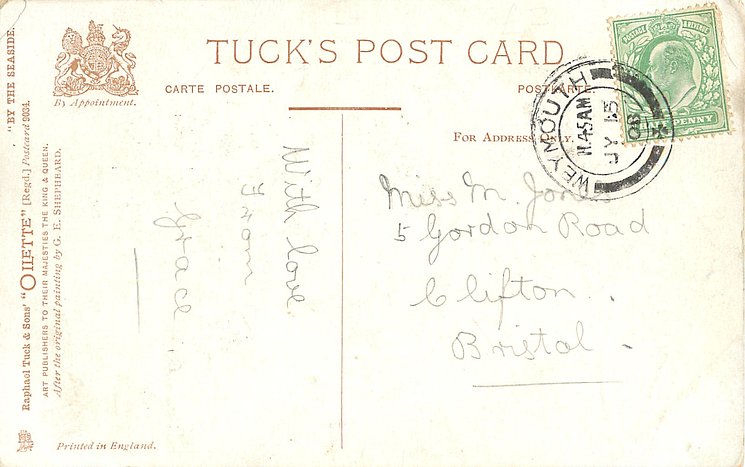 "BY THE SEASIDE.
Raphael Tuck & Sons' "OILETTE" [Regd.] Postcard 9034.
ART PUBLISHERS TO THEIR MAJESTIES THE KING & QUEEN.
After the original painting by G. E. SHEPHEARD.
By Appointment.
TUCK'S POST CARD
CARTE POSTALE.
POSTKARTE.
FOR ADDRESS ONLY.
POSTAGE & REVENUE
PENNY
WEYMOUTH
11.45AM
JY 15
06
With love
from
Grace
Miss M. Jones
5 Gordon Road
Clifton.
Bristol.
Printed in England.